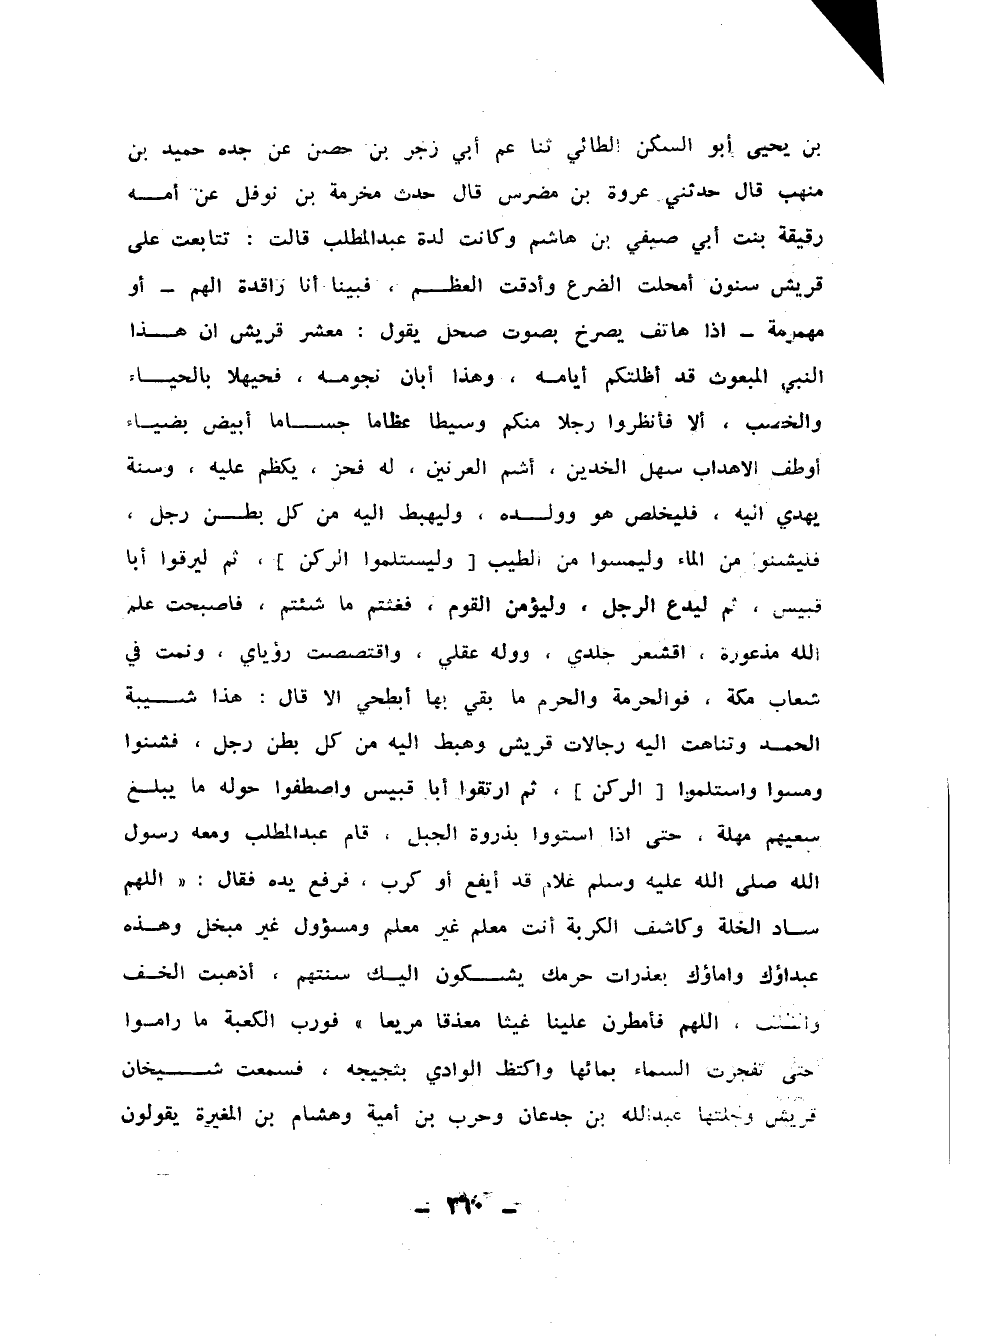 بن يحيى أبو السكن الطائي ثنا عم أبي زجر بن حصن عن جده حميد بن
منهب قال حدثني عروة بن مضرس قال حدث مخرمة بن نوفل عن أمه
رقيقة بنت أبي صيفي بن هاشم وكانت لدة عبدالمطلب قالت : تتابعت على
قريش سنون أمحلت الضرع وأدقت العظم ، فبينا أنا راقدة الهم – أو
مهمرمة – اذا هاتف يصرخ بصوت صحل يقول : معشر قريش ان هذا
النبي المبعوث قد أظلتكم أيامه ، وهذا أبان نجومه ، فحيهلا بالحياء
والخصب ، ألا فأنظروا رجلا منكم وسيطا عظاما جساما أبيض بضياء
أوطف الاهداب سهل الخدين ، أشم العرنين ، له فخر ، يكظم عليه ، وسنة
يهدي اليه ، فليخلص هو وولده ، وليهبط اليه من كل بطن رجل ،
فليشنوا من الماء وليمسوا من الطيب [ وليستلموا الركن ] ، ثم ليرقوا أبا
قبيس ، ثم ليدع الرجل ، وليؤمن القوم ، فغثتم ما شئتم ، فاصبحت علم
الله مذعورة ، اقشعر جلدي ، ووله عقلي ، واقتصصت رؤياي ، ونمت في
شعاب مكة ، فوالحرمة والحرم ما بقي بها أبطحي الا قال : هذا شيبة
الحمد وتناهت اليه رجالات قريش وهبط اليه من كل بطن رجل ، فشنوا
ومسوا واستلموا [ الركن ] ، ثم ارتقوا أبا قبيس واصطفوا حوله ما يبلغ
سعيهم مهلة ، حتى اذا استووا بذروة الجبل ، قام عبدالمطلب ومعه رسول
الله صلى الله عليه وسلم غلام قد أيفع أو كرب ، فرفع يده فقال : « اللهم
ساد الخلة وكاشف الكربة أنت معلم غير معلم ومسؤول غير مبخل وهذه
عبداؤك واماؤك بعذرات حرمك يشكون اليك سنتهم ، أذهبت الخف
والظلف ، اللهم فأمطرن علينا غيثا معذقا مريعا » فورب الكعبة ما راموا
حتى تفجرت السماء بمائها واكتظ الوادي بثجيجه ، فسمعت شيخان
قريش وجلتها عبدالله بن جدعان وحرب بن أمية وهشام بن المغيرة يقولون
– ٣٦٠ –